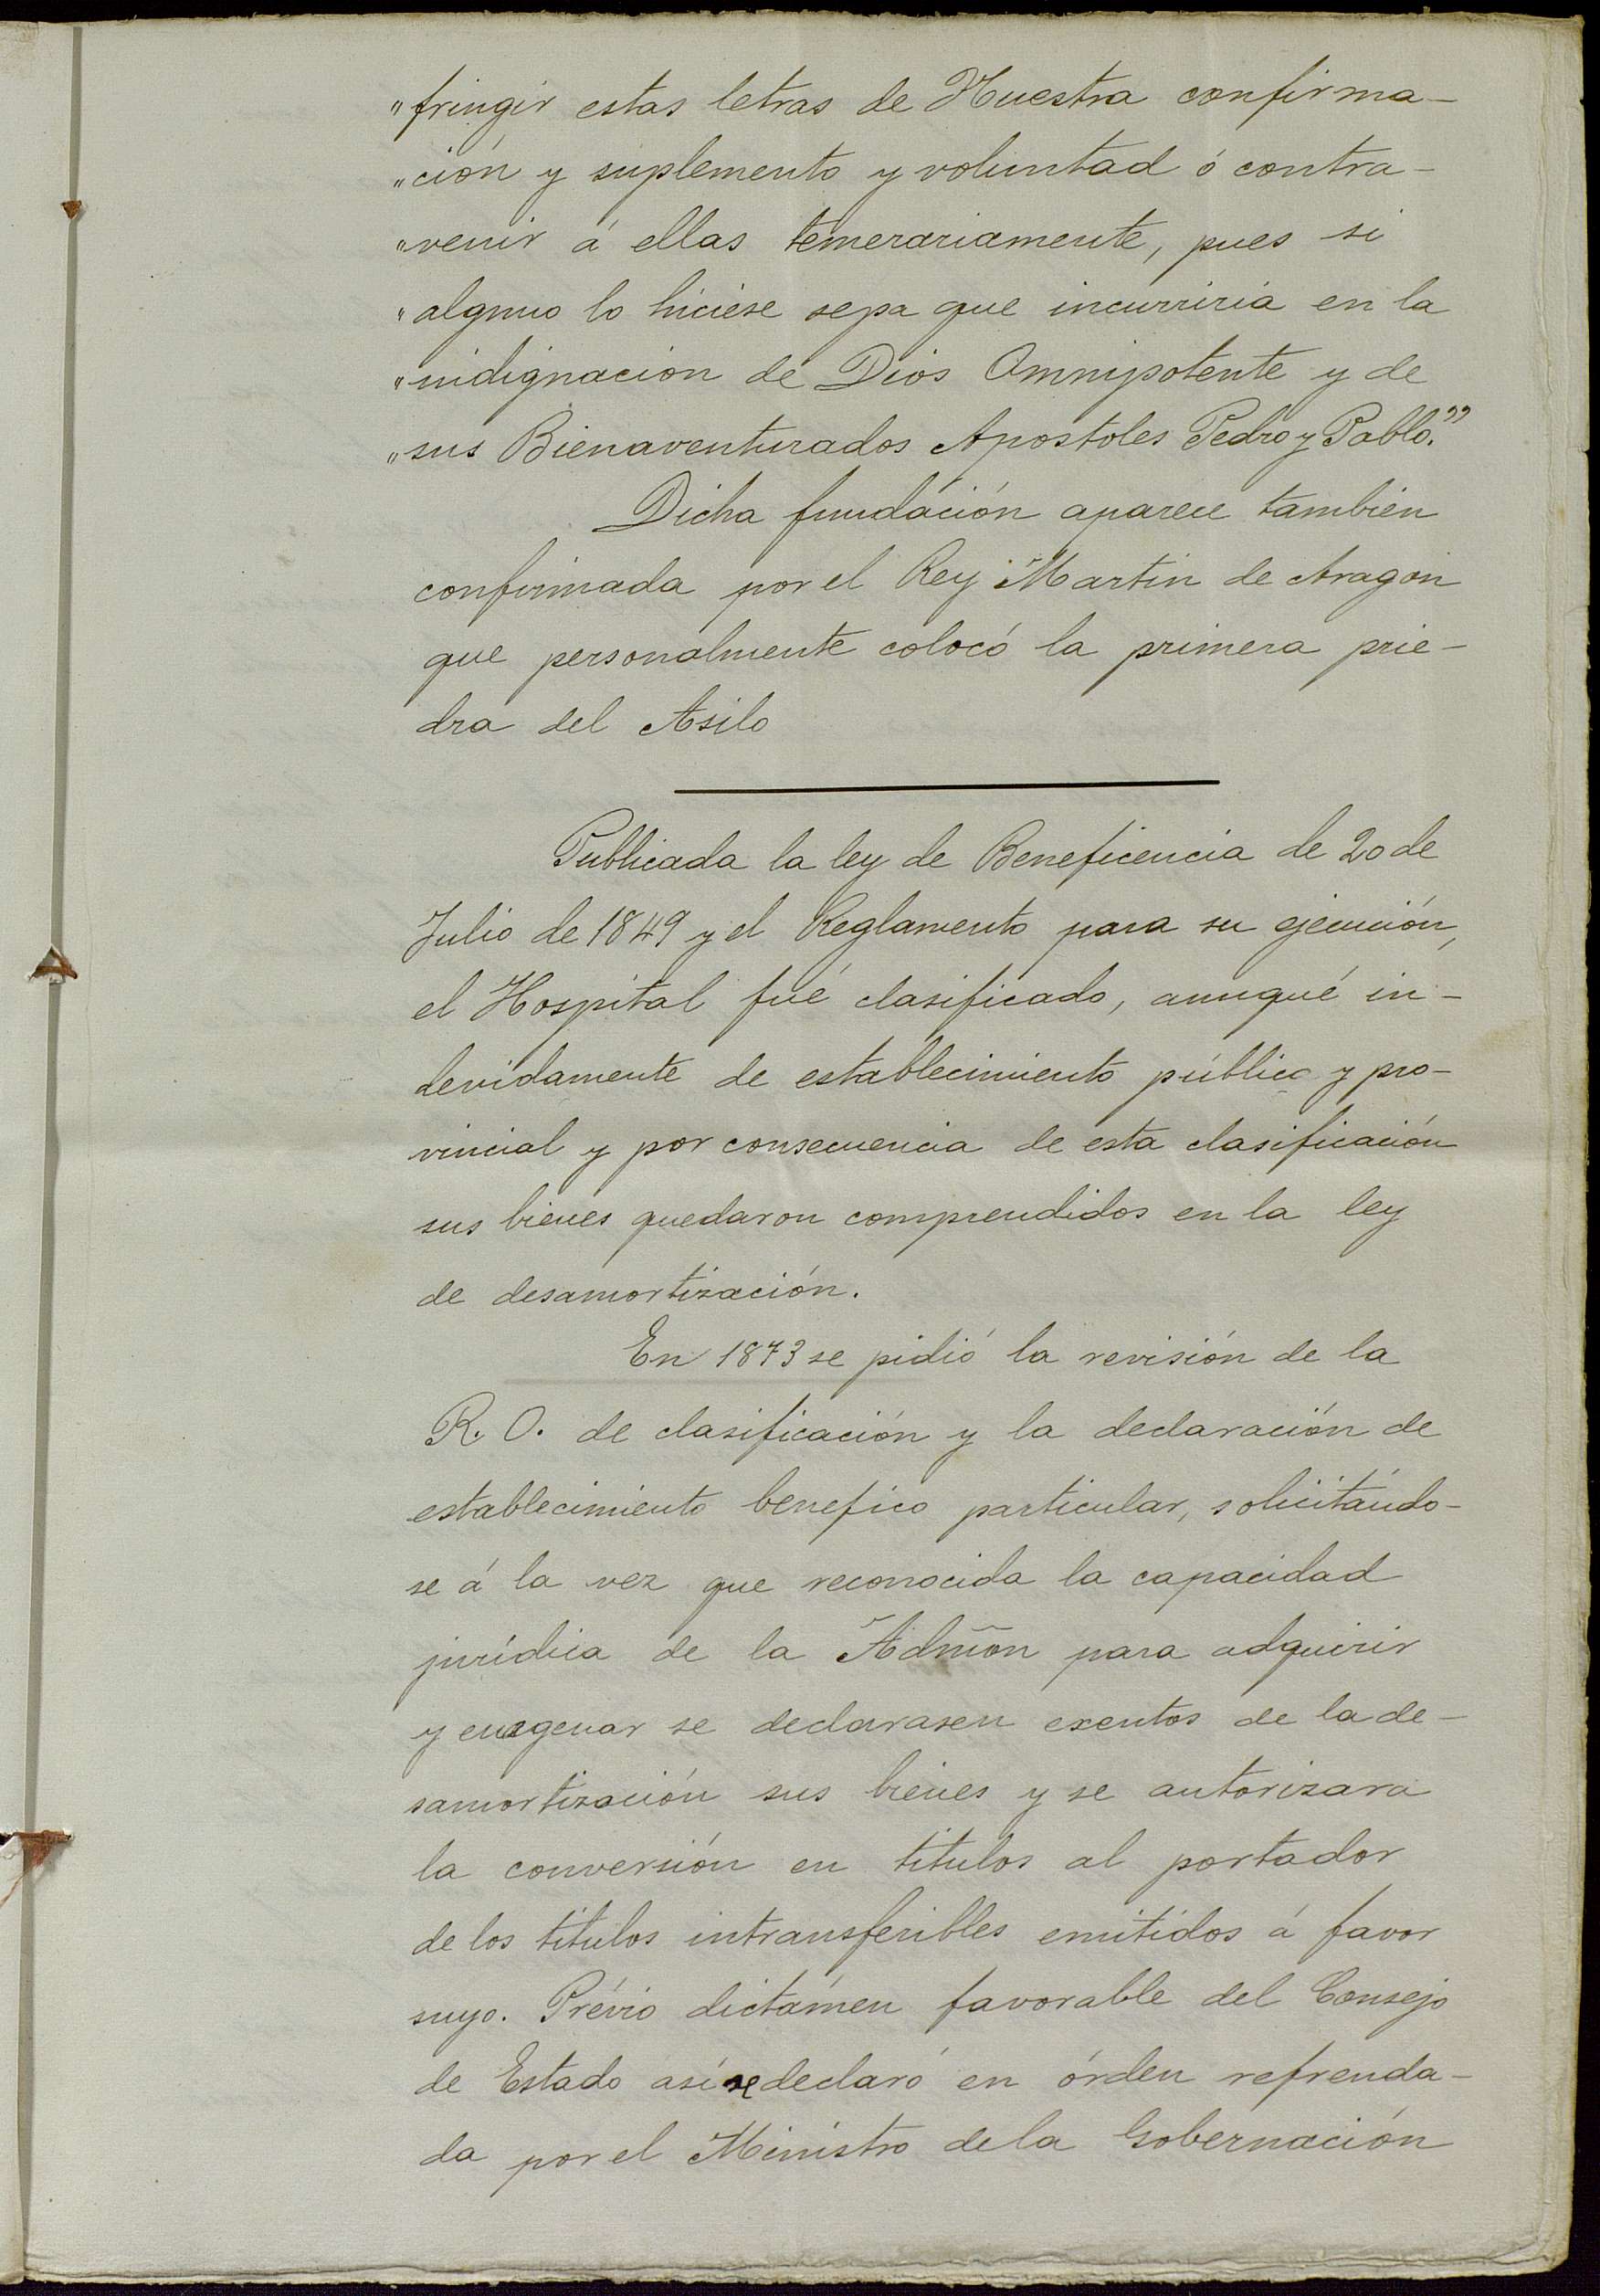 "fringir estas letras de Nuestra confirma-
"ción y suplemento y voluntad ó contra-
"venir á ellas temerariamente, pues si
"alguno lo hiciese sepa que incurriria en la
"indignacion de Dios Omnipotente y de
"sus Bienaventurados Apostoles Pedro y Pablo."
Dicha fundación aparece tambien
confirmada por el Rey Martin de Aragon
que personalmente colocó la primera prie-
dra del Asilo
Publicada la ley de Beneficencia de 20 de
Julio de 1849 y el Reglamento para su ejecución,
el Hospital fué clasificado, aunqué in-
devidamente de establecimiento público y pro-
vincial y por consecuencia de esta clasificación
sus bienes quedaron comprendidos en la ley
de desamortización.
En 1873 se pidió la revisión de la
R. O. de clasificación y la declaración de
establecimiento benefico particular, solicitándo-
se á la vez que reconocida la capacidad
jurídica de la Admõn para adquirir
y enagenar se declarasen exentos de la de-
samortización sus bienes y se autorizara
la conversión en títulos al portador
de los títulos intransferibles emitidos á favor
suyo. Prévio dictámen favorable del Consejo
de Estado así se declaró en órden refrenda-
da por el Ministro de la Gobernación